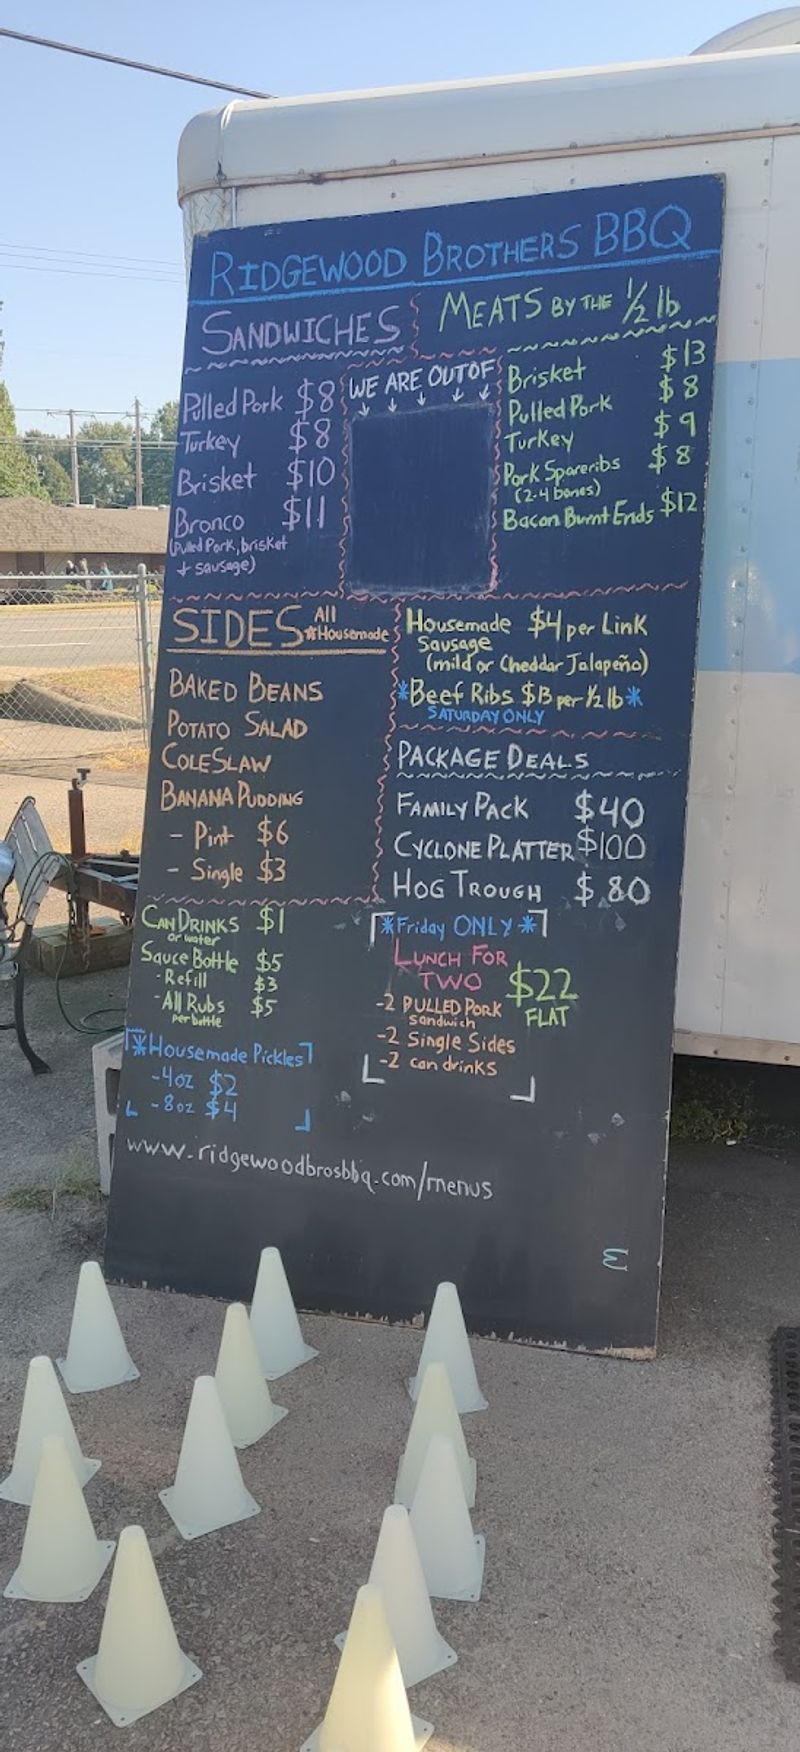 RIDGEWOOD BROTHERS BBQ
SANDWICHES
Pulled Pork $8
Turkey $8
Brisket $10
Bronco $11
(Pulled Pork, brisket
+ sausage)
WE ARE OUT OF
MEATS BY THE 1/2 lb
Brisket $13
Pulled Pork $8
Turkey $9
Pork Spareribs $8
(2-4 bones)
Bacon Burnt Ends $12
Housemade $4 per Link
Sausage
(mild or Cheddar Jalapeño)
*Beef Ribs $13 per 1/2 lb*
SATURDAY ONLY
SIDES All
*Housemade
BAKED BEANS
POTATO SALAD
COLESLAW
BANANA PUDDING
- Pint $6
- Single $3
PACKAGE DEALS
FAMILY PACK $40
CYCLONE PLATTER $100
HOG TROUGH $80
CAN DRINKS $1
or water
Sauce Bottle $5
- Refill $3
- All Rubs $5
per bottle
*Housemade Pickles
- 4oz $2
- 8oz $4
*Friday ONLY*
LUNCH FOR
TWO $22
FLAT
-2 PULLED PORK
Sandwich
-2 Single Sides
-2 can drinks
www.ridgewoodbrosbbq.com/menus